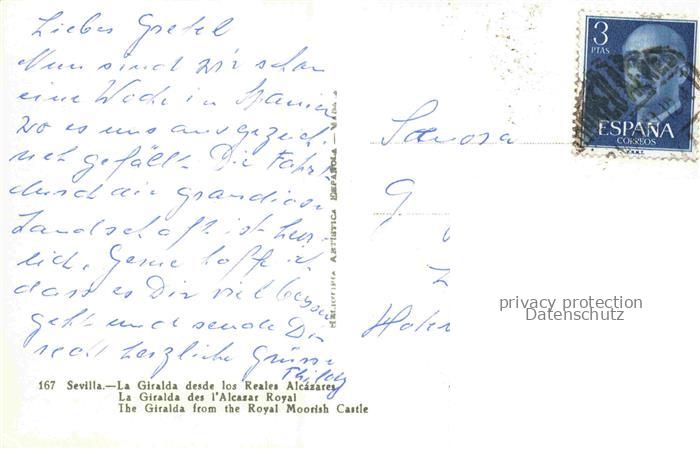 Liebes Gretel
Nun sind wir schon
eine Woche in Spanien
wo es uns ausgezeich-
net gefällt. Die Fahrt
durch die grandiose
Landschaft ist herr-
lich. Gerne hoffe ich
dass es Dir viel besser
geht und sende Dir
recht herzliche Grüsse
HELIOTIPIA ARTISTICA ESPAÑOLA
167 Sevilla.—La Giralda desde los Reales Alcázares
La Giralda des l'Alcazar Royal
The Giralda from the Royal Moorish Castle
3
PTAS
ESPAÑA
CORREOS
G
privacy protection
Datenschutz